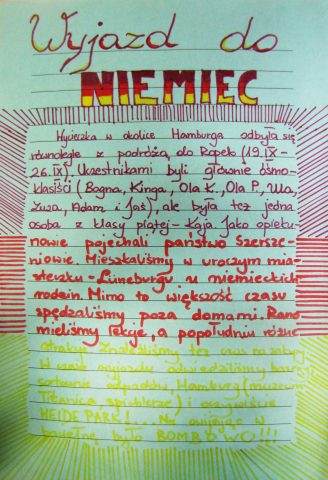 Wyjazd do
NIEMIEC
Wycieczka w okolice Hamburga odbyła się
równolegle z podróżą do Ropek (19.IX-
26.IX). Uczestnikami byli głównie ósmo-
klasiści (Bogna, Kinga, Ola K., Ola P., Ula,
Zuza, Adam i Jaś), ale była też jedna
osoba z klasy piątej - Kaja. Jako opieku-
nowie pojechali państwo Szersze-
niowie. Mieszkaliśmy w uroczym mia-
steczku - Lüneburgu u niemieckich
rodzin. Mimo to większość czasu
spędzaliśmy poza domami. Rano
mieliśmy lekcje, a popołudniu różne
atrakcje. Znaleźliśmy też czas na zakupy.
W czasie wyjazdu odwiedzaliśmy basen,
sortownię odpadów, Hamburg (muzeum
Titanica, spichlerze) i oczywiście
HEIDE PARK!... No
było BOMBOWO!!!